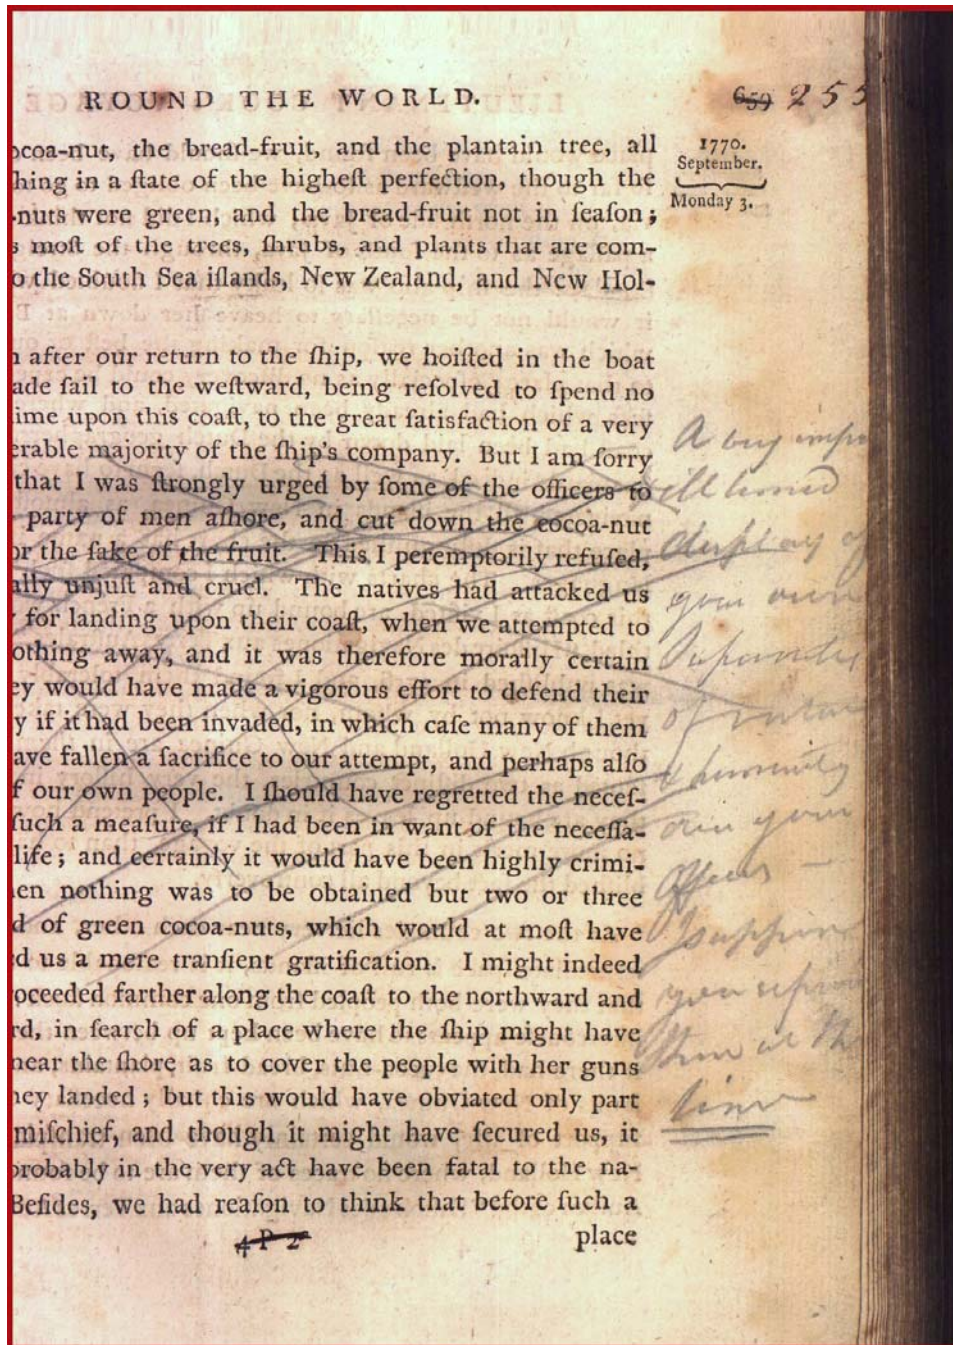 ROUND THE WORLD.
659 255
1770.
September.
Monday 3.
ocoa-nut, the bread-fruit, and the plantain tree, all
hing in a ſtate of the higheſt perfection, though the
-nuts were green, and the bread-fruit not in ſeaſon;
s moſt of the trees, ſhrubs, and plants that are com-
o the South Sea iſlands, New Zealand, and New Hol-
n after our return to the ſhip, we hoiſted in the boat
ade ſail to the weſtward, being reſolved to ſpend no
ime upon this coaſt, to the great ſatisfaction of a very
erable majority of the ſhip's company. But I am ſorry
that I was ſtrongly urged by ſome of the officers to
party of men aſhore, and cut down the cocoa-nut
or the ſake of the fruit. This I peremptorily refuſed,
ally unjuſt and cruel. The natives had attacked us
for landing upon their coaſt, when we attempted to
othing away, and it was therefore morally certain
ey would have made a vigorous effort to defend their
y if it had been invaded, in which caſe many of them
ave fallen a ſacrifice to our attempt, and perhaps alſo
f our own people. I ſhould have regretted the neceſ-
ſuch a meaſure, if I had been in want of the neceſſa-
life; and certainly it would have been highly crimi-
en nothing was to be obtained but two or three
d of green cocoa-nuts, which would at moſt have
d us a mere tranſient gratification. I might indeed
oceeded farther along the coaſt to the northward and
rd, in ſearch of a place where the ſhip might have
near the ſhore as to cover the people with her guns
ey landed; but this would have obviated only part
miſchief, and though it might have ſecured us, it
probably in the very act have been fatal to the na-
Beſides, we had reaſon to think that before ſuch a
4 P 2
place
A very
ill timed
display of
your own
of
& humanity
over your
officers —
I suppose
you
them at the
time